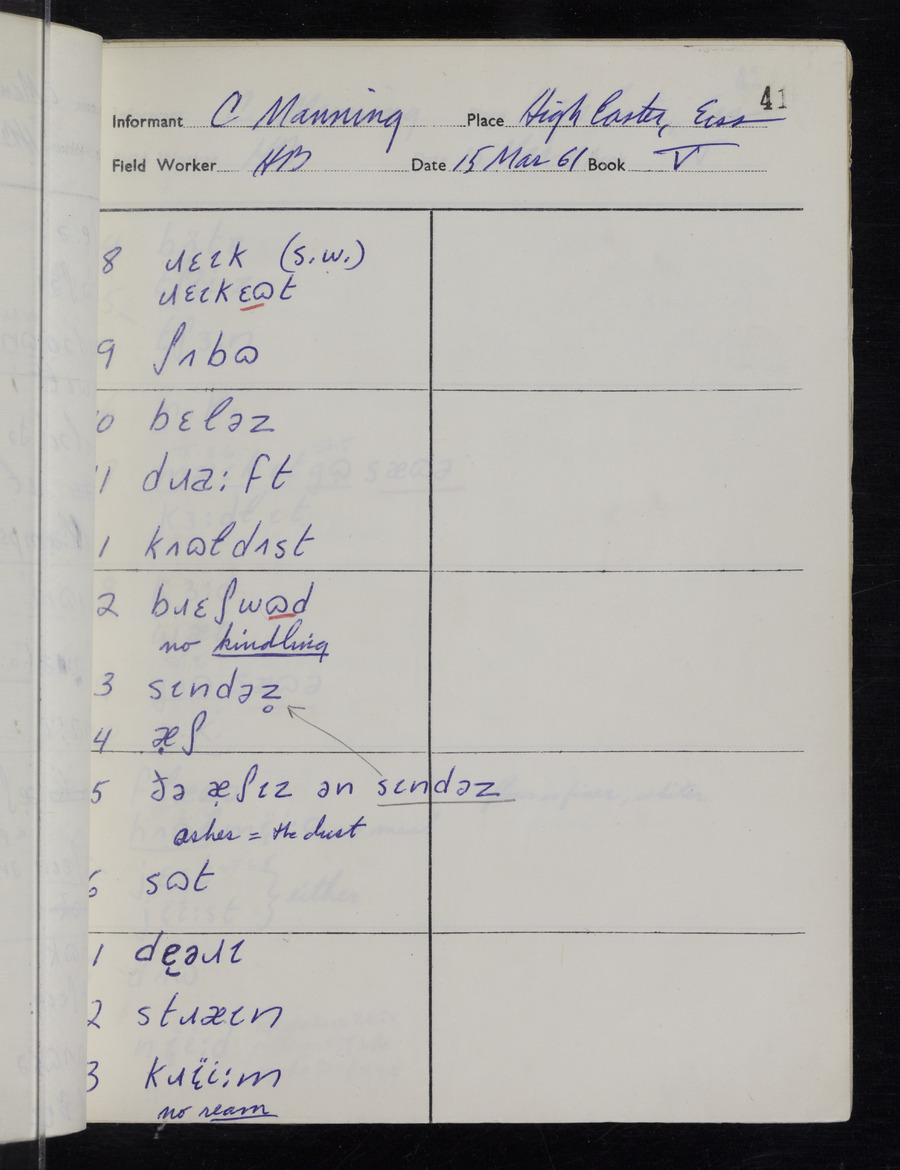 41
Informant C Manning Place High Easter, Essex
Field Worker HB Date 15 Mar 61 Book V
8 ɹɛɩk (s.w.)
ɹɛɩkɛɷt
9 ʃʌbɷ
10 bɛləz
11 dɹa:ft
1 kʌɷldʌst
2 bɹɛʃwɷd
no kindling
3 sɩndəz̥
4 æ̣ʃ
5 ðə æ̣ʃɩz ən sɩndəz
ashes = the dust
6 sɷt
1 dɛ̨əɹɩ
2 stɹæɩn
3 kɹɩ̈i:m
no ream